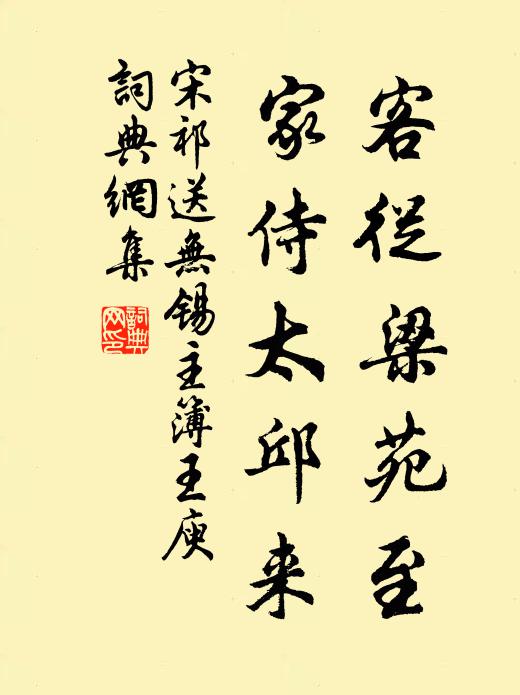 客從梁苑至
家侍太邱来
宋祁送無錫主簿王庾
詞典網集
詞典网印